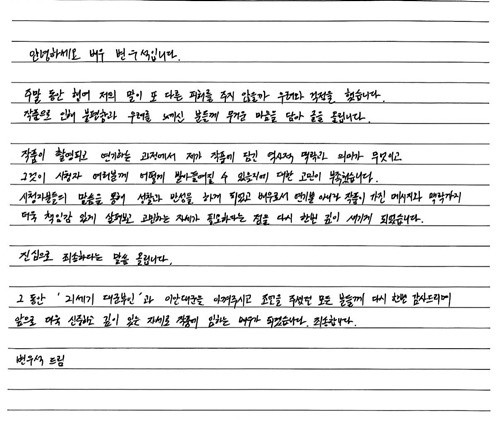 안녕하세요 배우 변우석입니다.
주말 동안 혹여 저의 말이 또 다른 피해를 주지 않을까 우려와 걱정을 했습니다.
작품으로 인해 불편함과 우려를 느끼신 분들께 무거운 마음을 담아 글을 올립니다.
작품이 촬영되고 연기하는 과정에서 제가 작품에 담긴 역사적 맥락과 의미가 무엇이고
그것이 시청자 여러분께 어떻게 받아들여질 수 있을지에 대한 고민이 부족했습니다.
시청자분들의 말씀을 통해 성찰과 반성을 하게 되었고 배우로서 연기뿐 아니라 작품이 가진 메시지와 맥락까지
더욱 책임감 있게 살펴보고 고민하는 자세가 필요하다는 점을 다시 한번 깊이 새기게 되었습니다.
진심으로 죄송하다는 말씀 올립니다.
그 동안 '21세기 대군부인'과 이안대군을 아껴주시고 표고를 주셨던 모든 분들께 다시 한번 감사드리며
앞으로 더욱 신중하고 깊이 있는 자세로 작품에 임하는 배우가 되겠습니다. 죄송합니다.
변우석 드림